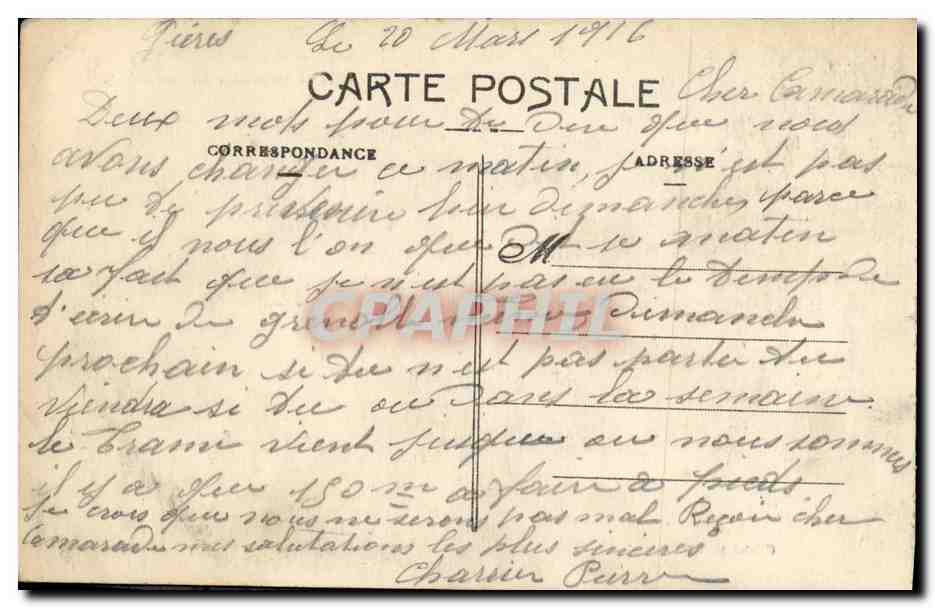 Gières Le 20 Mars 1916
CARTE POSTALE
Cher Camarade
Deux mots pour Du Dire que nous
CORRESPONDANCE
ADRESSE
avons changer ce matin, je n'est pas
pu De prévenir hier dimanche, parce
que il nous l'on que Dit se matin
M
sa fait que je n'est pas eu le Temps De
D'écrire De Grenoble Dimanche
CPARPHIL
prochain si Du n'est pas parti Du
viendra si Du ou Dans la semaine
le Tram vient jusque ou nous sommes
il y a que 150 m a faire a pieds
je crois que nous ne serons pas mal. Reçoir cher
Camarade mes salutations les plus sincères
Charrier Pierre